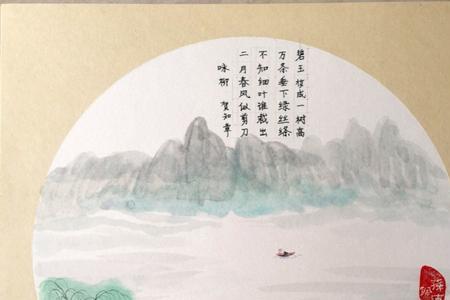 碧玉妆成一树高
万条垂下绿丝绦
不知细叶谁裁出
二月春风似剪刀
咏柳 贺知章